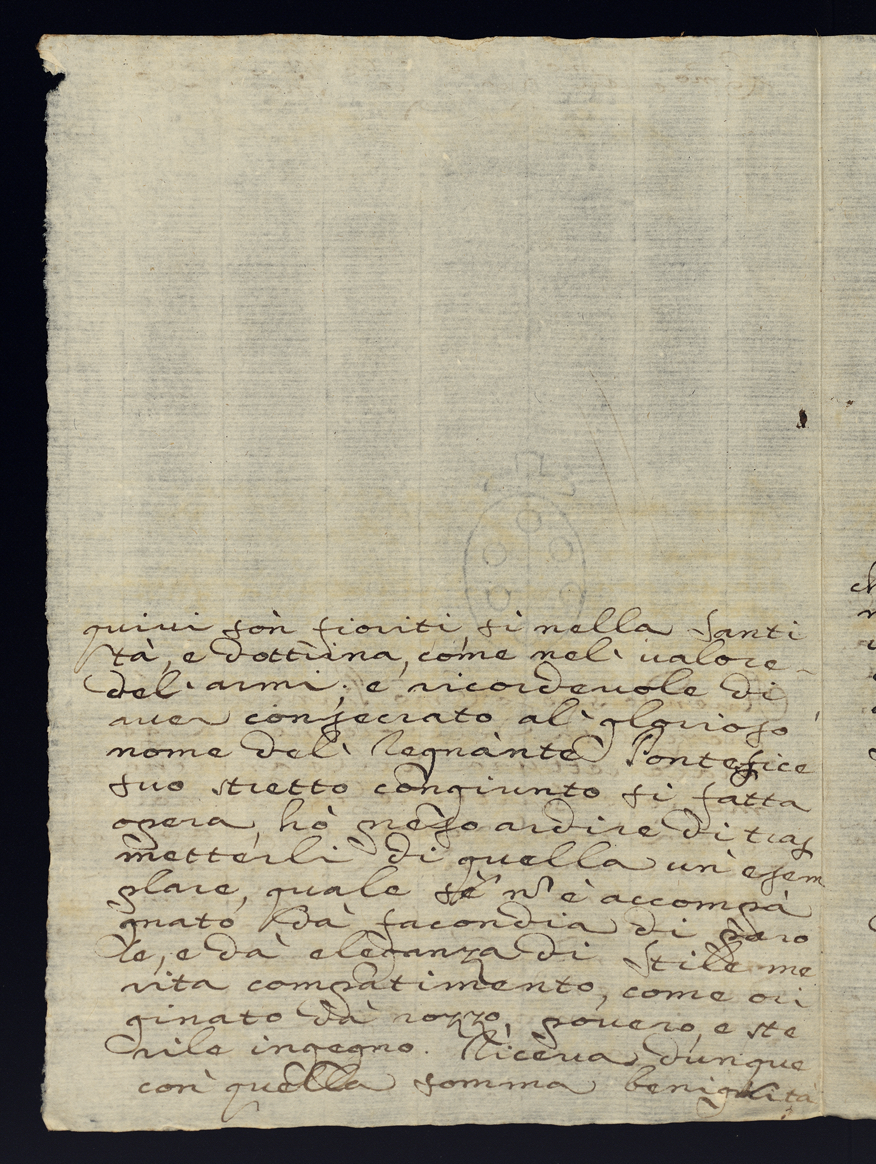 quivi son fioriti, si nella Santi
tà, e dottrina, come nel valore
del armi; e ricordevole di
aver consecrato al glorioso
nome del Regnante Pontefice
suo stretto congiunto si fatta
opera, hò preso ardire di tras
metterli di quella un'esem
plare, quale sè nõ è accompà
gnato dà facondia di paro
le, e dà eleganza di Stile me
rita compatimento, come ori
ginato dà rozzo, povero, e ste
rile ingegno. Riceva dunque
con quella somma benignità